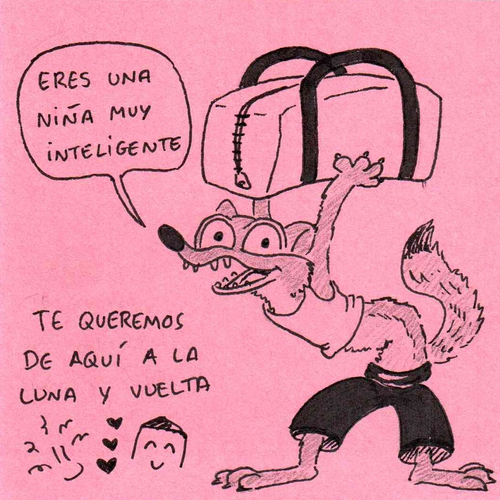 ERES UNA
NIÑA MUY
INTELIGENTE
TE QUEREMOS
DE AQUÍ A LA
LUNA Y VUELTA